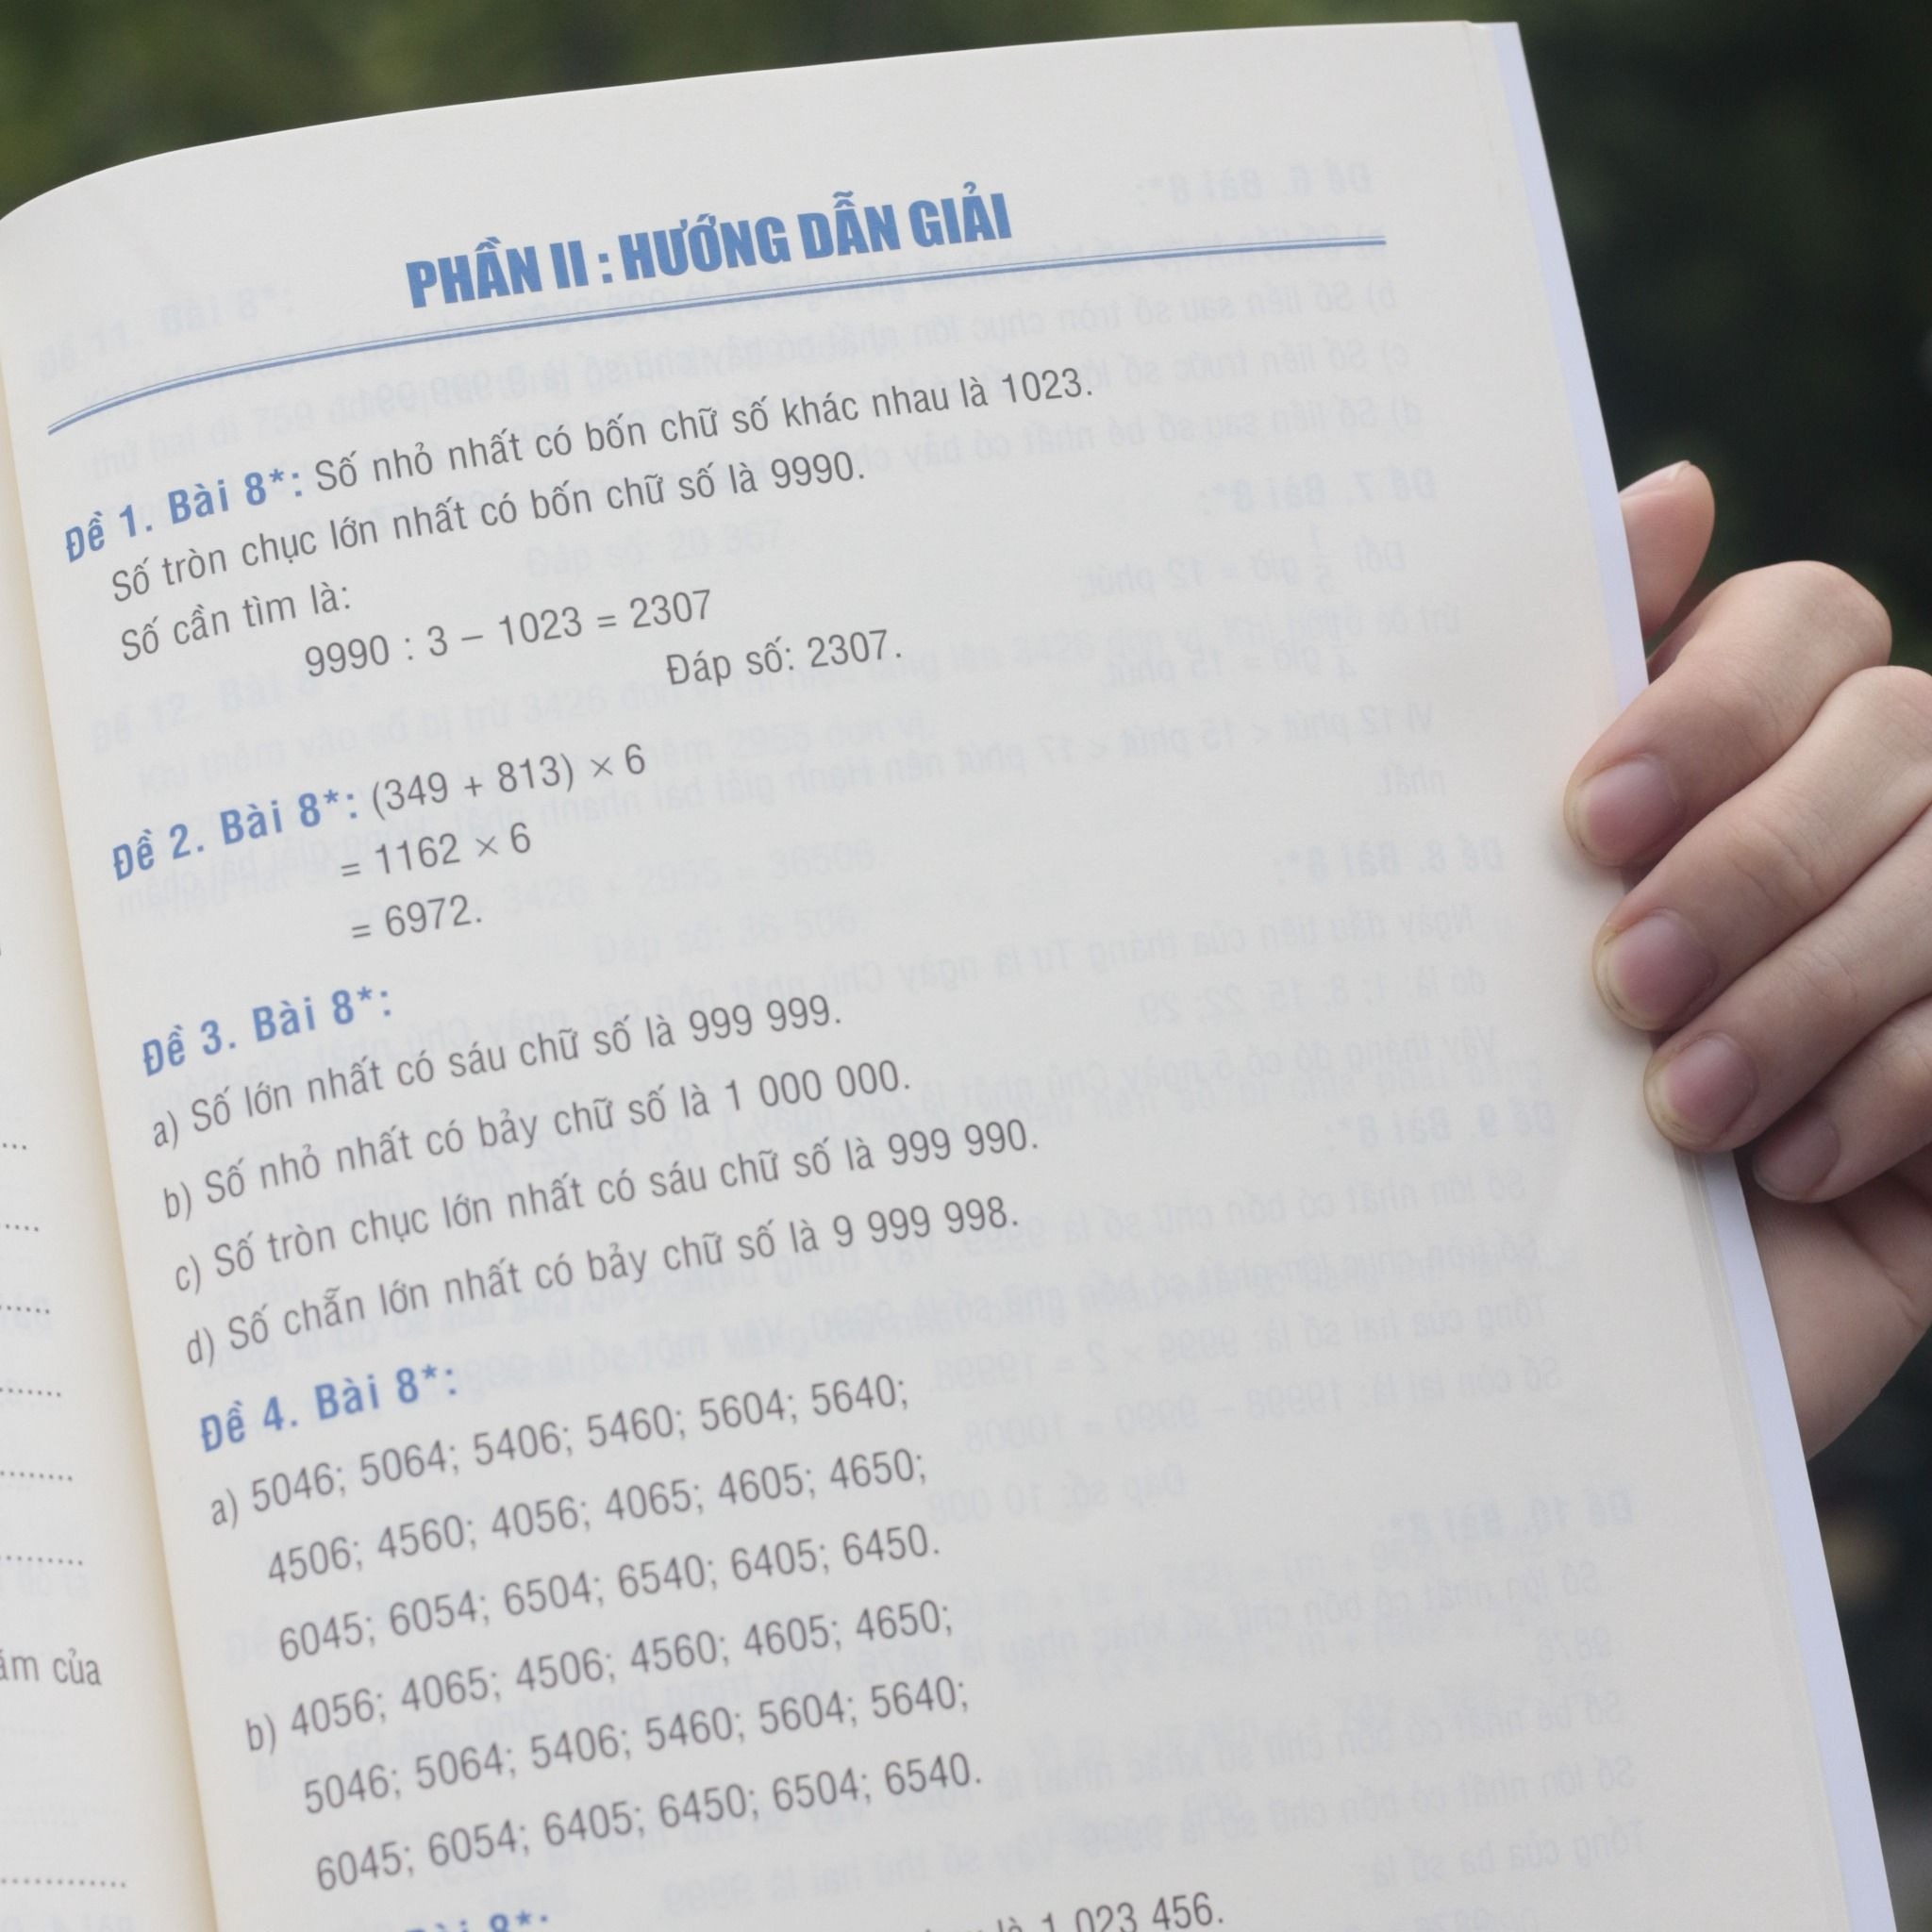 PHẦN II : HƯỚNG DẪN GIẢI
Đề 1. Bài 8*: Số nhỏ nhất có bốn chữ số khác nhau là 1023.
Số tròn chục lớn nhất có bốn chữ số là 9990.
Số cần tìm là:
9990 : 3 – 1023 = 2307
Đáp số: 2307.
Đề 2. Bài 8*: (349 + 813) × 6
= 1162 × 6
= 6972.
Đề 3. Bài 8*:
a) Số lớn nhất có sáu chữ số là 999 999.
b) Số nhỏ nhất có bảy chữ số là 1 000 000.
c) Số tròn chục lớn nhất có sáu chữ số là 999 990.
d) Số chẵn lớn nhất có bảy chữ số là 9 999 998.
Đề 4. Bài 8*:
a) 5046; 5064; 5406; 5460; 5604; 5640;
4506; 4560; 4056; 4065; 4605; 4650;
6045; 6054; 6504; 6540; 6405; 6450.
b) 4056; 4065; 4506; 4560; 4605; 4650;
5046; 5064; 5406; 5460; 5604; 5640;
6045; 6054; 6405; 6450; 6504; 6540.
Bài 8*:
là 1 023 456.
của